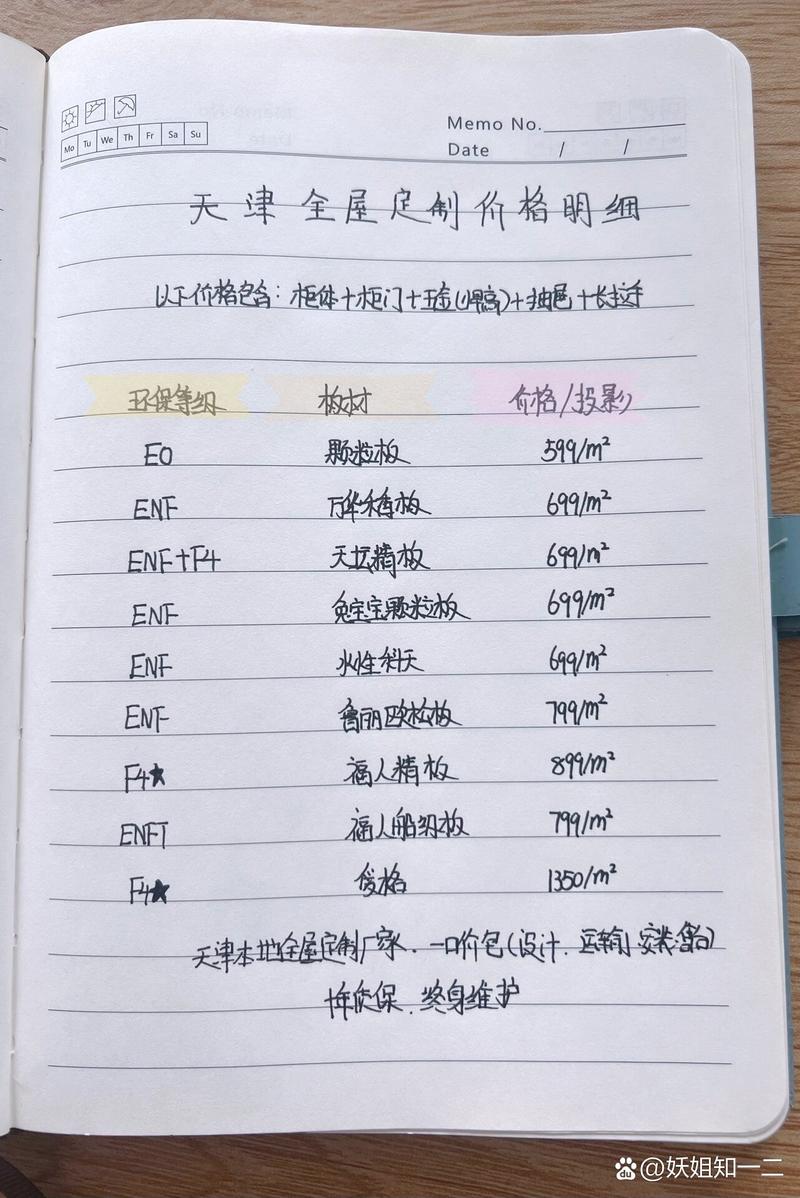 Mo Tu We Th Fr Sa Su
Memo No.
Date / /
天津全屋定制价格明细
以下价格包含：柜体+柜门+五金()+抽屉+长拉手
环保等级 板材 价格/投影
E0 颗粒板 599/m²
ENF 万华禾香板 699/m²
ENF+F4 天坛精板 699/m²
ENF 兔宝宝颗粒板 699/m²
ENF 水性科天 699/m²
ENF 鲁丽欧松板 799/m²
F4★ 福人精板 899/m²
ENF 福人船级板 799/m²
F4★ 爱格 1350/m²
天津本地全屋定制厂家．一口价包(设计．运输．安装)
年质保．终身维护
du @妖姐知一二